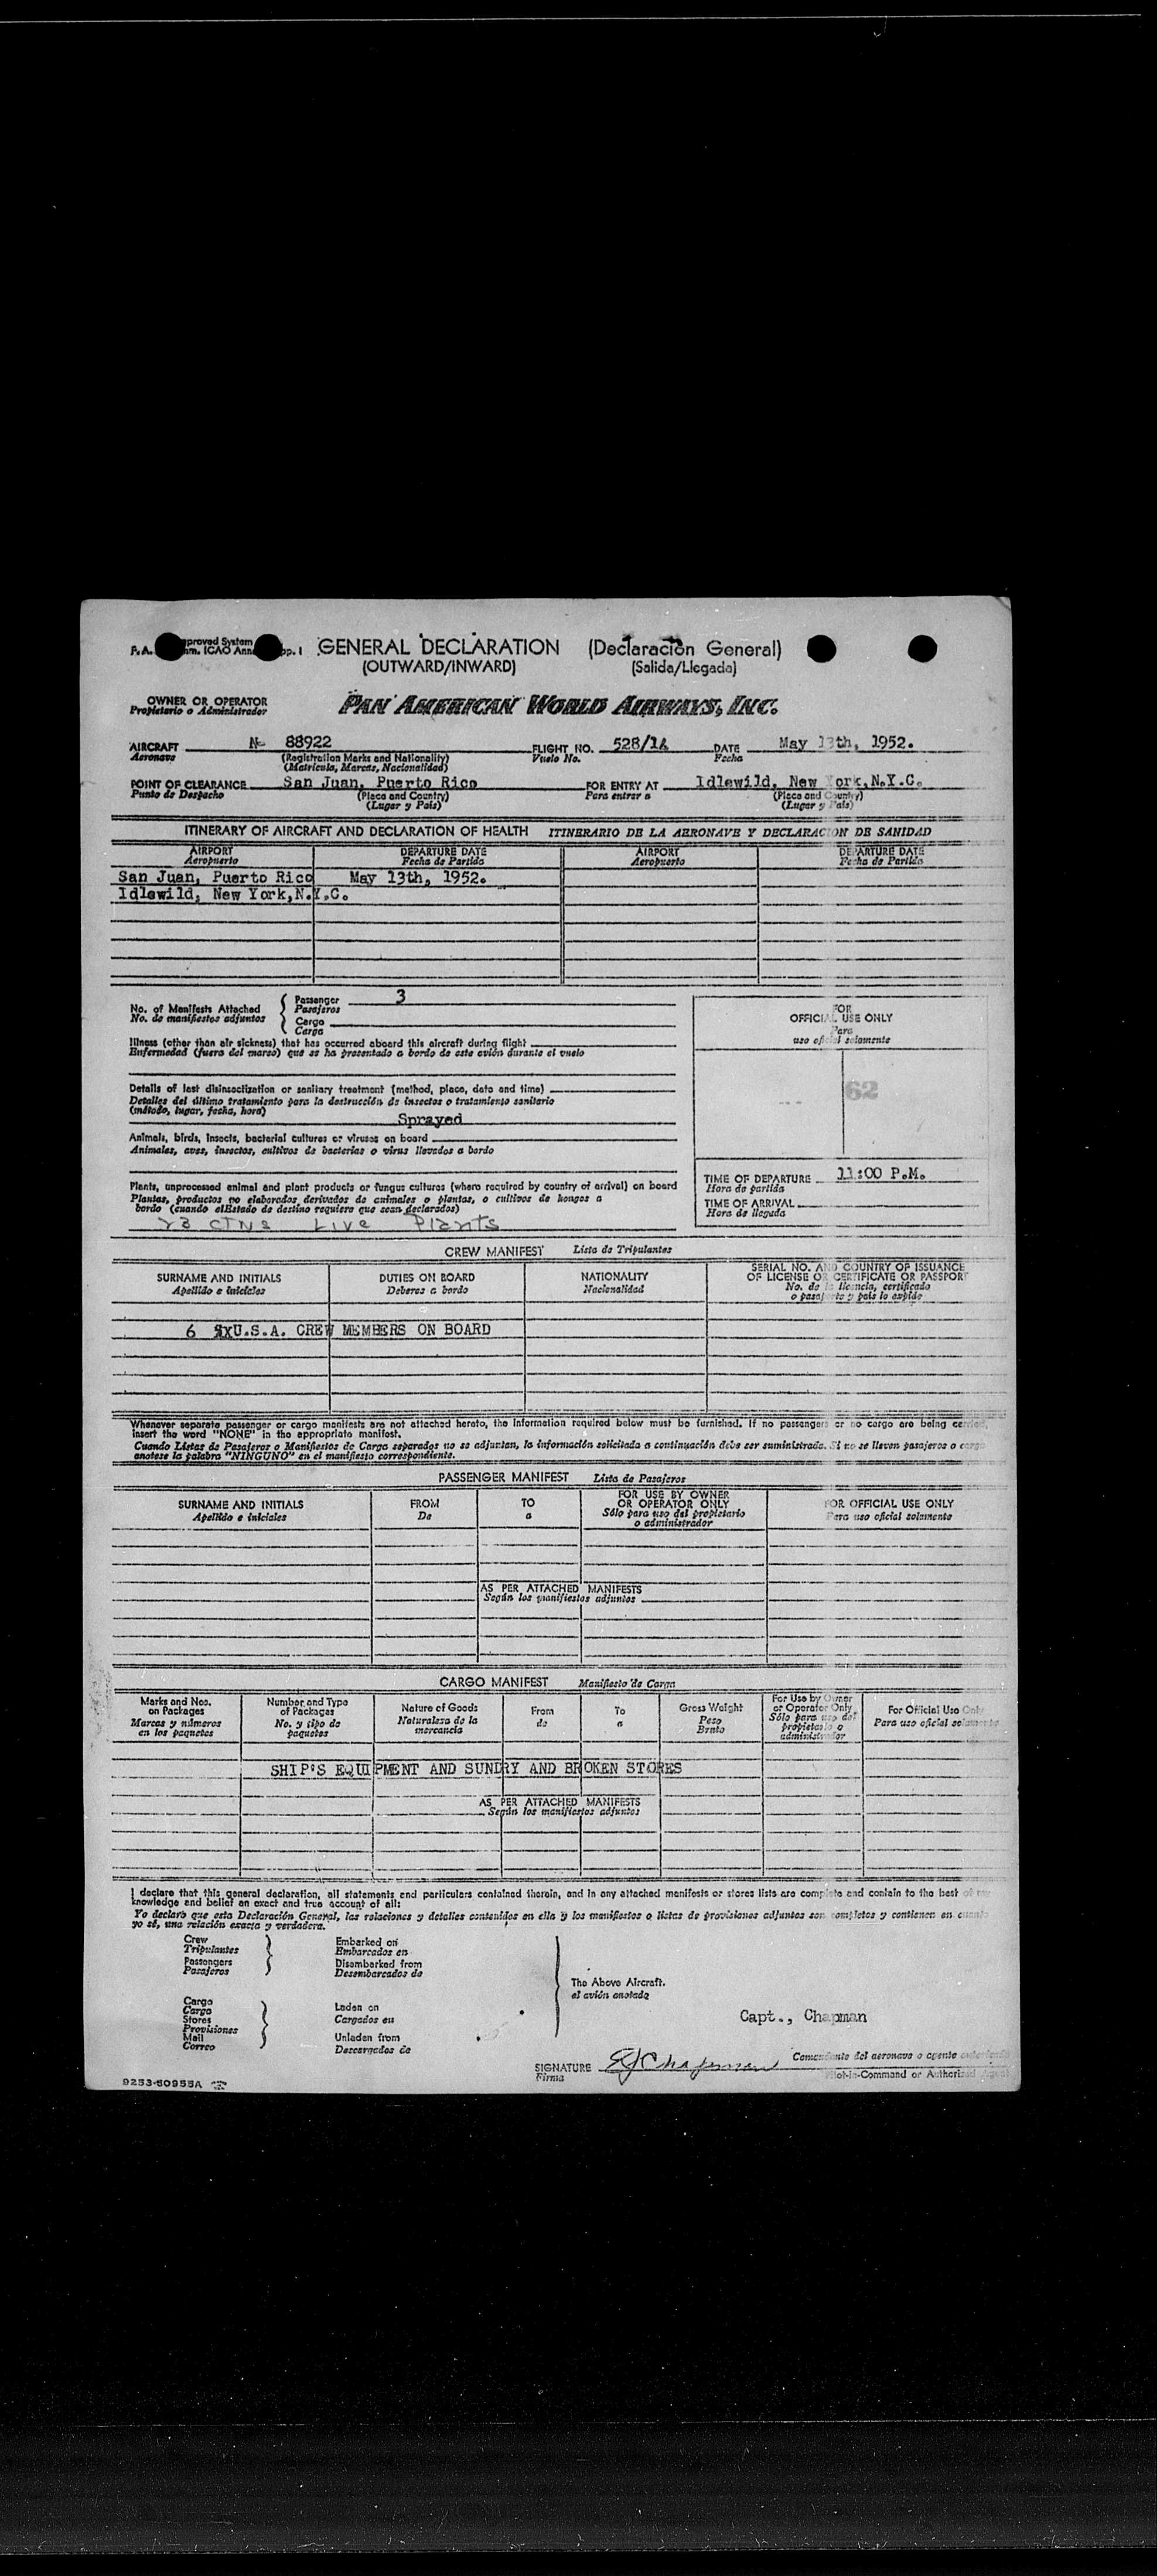 GENERAL DECLARATION (Declaración General)
(OUTWARD/INWARD) (Salida/Llegada)
OWNER OR OPERATOR
Propietario o Administrador
PAN AMERICAN WORLD AIRWAYS, INC.
AIRCRAFT N- 88922 FLIGHT NO. 528/1A DATE May 13th, 1952.
Aeronave (Registration Marks and Nationality) Vuelo No. Fecha
(Matricula, Marcas, Nacionalidad)
POINT OF CLEARANCE San Juan, Puerto Rico FOR ENTRY AT Idlewild, New York,N.Y.C.
Punto de Despacho (Place and Country) Para entrar a (Place and Country)
(Lugar y País) (Lugar y País)
ITINERARY OF AIRCRAFT AND DECLARATION OF HEALTH ITINERARIO DE LA AERONAVE Y DECLARACION DE SANIDAD
AIRPORT DEPARTURE DATE AIRPORT DEPARTURE DATE
Aeropuerto Fecha de Partida Aeropuerto Fecha de Partida
San Juan, Puerto Rico May 13th, 1952.
Idlewild, New York,N.Y.C.
No. of Manifests Attached
No. de manifiestos adjuntos
Passenger 3
Pasajeros
Cargo
Carga
FOR
OFFICIAL USE ONLY
Para
uso oficial solamente
62
Illness (other than air sickness) that has occurred aboard this aircraft during flight
Enfermedad (fuera del mareo) que se ha presentado a bordo de este avión durante el vuelo
Details of last disinsectization or sanitary treatment (method, place, date and time)
Detalles del último tratamiento para la destrucción de insectos o tratamiento sanitario
(método, lugar, fecha, hora)
Sprayed
Animals, birds, insects, bacterial cultures or viruses on board
Animales, aves, insectos, cultivos de bacterias o virus llevados a bordo
Plants, unprocessed animal and plant products or fungus cultures (where required by country of arrival) on board
Plantas, productos no elaborados derivados de animales o plantas, o cultivos de hongos a
bordo (cuando elEstado de destino requiere que sean declarados)
23 CTNS Live Plants
TIME OF DEPARTURE 11:00 P.M.
Hora de partida
TIME OF ARRIVAL
Hora de llegada
CREW MANIFEST Lista de Tripulantes
SURNAME AND INITIALS DUTIES ON BOARD NATIONALITY SERIAL NO. AND COUNTRY OF ISSUANCE
OF LICENSE OR CERTIFICATE OR PASSPORT
Apellido e iniciales Deberes a bordo Nacionalidad No. de la licencia, certificado
o pasaporte y pais lo expide
6 U.S.A. CREW MEMBERS ON BOARD
Whenever separate passenger or cargo manifests are not attached hereto, the information required below must be furnished. If no passengers or no cargo are being carried,
insert the word "NONE" in the appropriate manifest.
Cuando Listas de Pasajeros o Manifiestos de Carga separados no se adjuntan, la información solicitada a continuación debe ser suministrada. Si no se lleven pasajeros o carga
anotese la palabra "NINGUNO" en el manifiesto correspondiente.
PASSENGER MANIFEST Lista de Pasajeros
SURNAME AND INITIALS FROM TO FOR USE BY OWNER
OR OPERATOR ONLY FOR OFFICIAL USE ONLY
Apellido e iniciales De a Sólo para uso del propietario
o administrador Para uso oficial solamente
AS PER ATTACHED MANIFESTS
Según los manifiestos adjuntos
CARGO MANIFEST Manifiesto de Carga
Marks and Nos.
on Packages
Marcas y números
en los paquetes
Number and Type
of Packages
No. y tipo de
paquetes
Nature of Goods
Naturaleza de la
mercancia
From
de
To
a
Gross Weight
Peso
Bruto
For Use by Owner
or Operator Only
Sólo para uso del
propietario o
administrador
For Official Use Only
Para uso oficial solamente
SHIP'S EQUIPMENT AND SUNDRY AND BROKEN STORES
AS PER ATTACHED MANIFESTS
Según los manifiestos adjuntos
I declare that this general declaration, all statements and particulars contained therein, and in any attached manifests or stores lists are complete and contain to the best of my
knowledge and belief an exact and true account of all:
Yo declaro que esta Declaración General, las relaciones y detalles contenidos en ella y los manifiestos o listas de provisiones adjuntos son completos y contienen en cuanto
yo sé, una relación exacta y verdadera.
Crew
Tripulantes
Passengers
Pasajeros
Embarked on
Embarcados en
Disembarked from
Desembarcados de
Cargo
Cargo
Stores
Provisiones
Mail
Correo
Laden on
Cargados en
Unladen from
Descargados de
The Above Aircraft.
el avión anotado
Capt., Chapman
SIGNATURE EJChapman
Firma
Comandante del aeronave o agente autorizado
Pilot-in-Command or Authorized Agent
9253-50955A